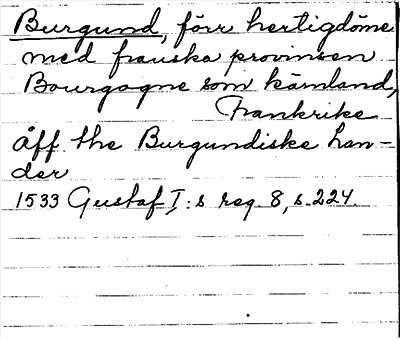 Burgund, förr hertigdöme
med franska provinsen
Bourgogne som kärnland,
Frankrike
åff the Burgundiske Län-
der
1533 Gustaf I:s reg. 8, s. 224.